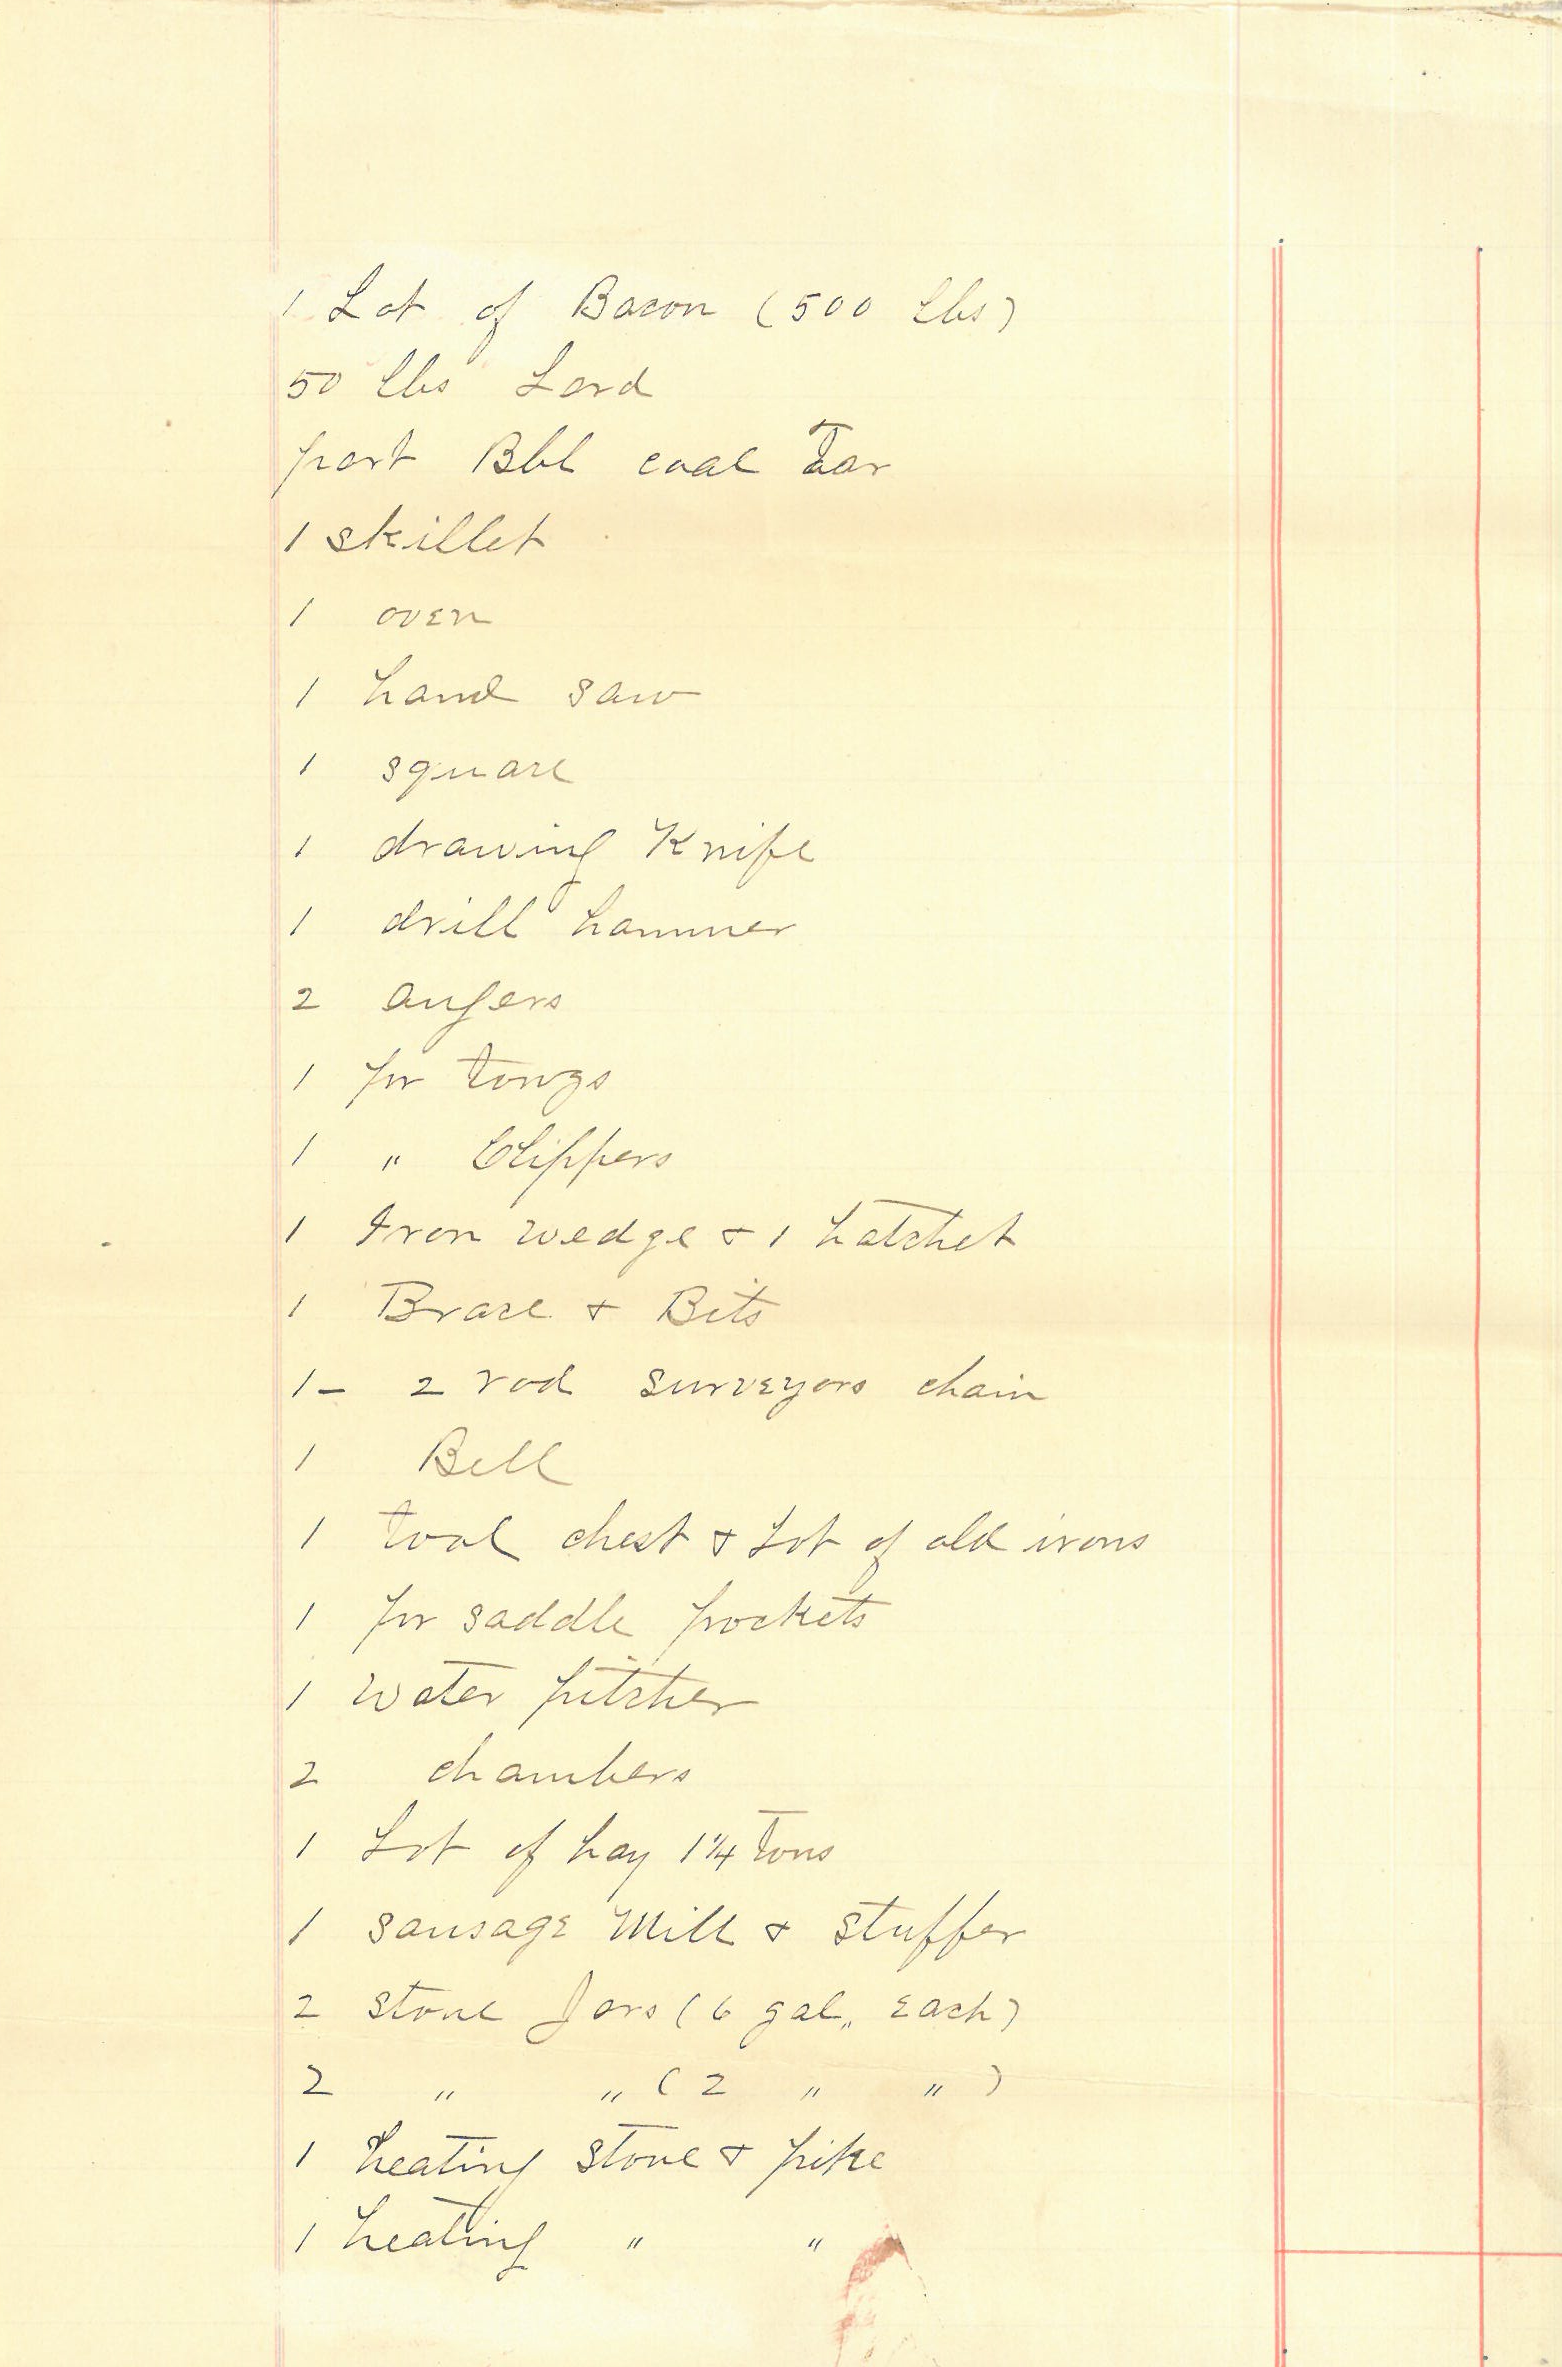 1 Lot of Bacon (500 lbs)
50 lbs Lard
part Bbl coal Tar
1 skillet
1 oven
1 hand saw
1 square
1 drawing Knife
1 drill hammer
2 augers
1 pr tongs
1 " Clippers
1 Iron wedge & 1 hatchet
1 Brace & Bits
1 - 2 rod surveyors chain
1 Bell
1 tool chest & Lot of old irons
1 pr saddle pockets
1 water pitcher
2 chambers
1 Lot of hay 1 1/4 Tons
1 sausage Mill & stuffer
2 stone Jars (6 gal. Each)
2 " " (2 " ")
1 heating stove & pipe
1 heating " "